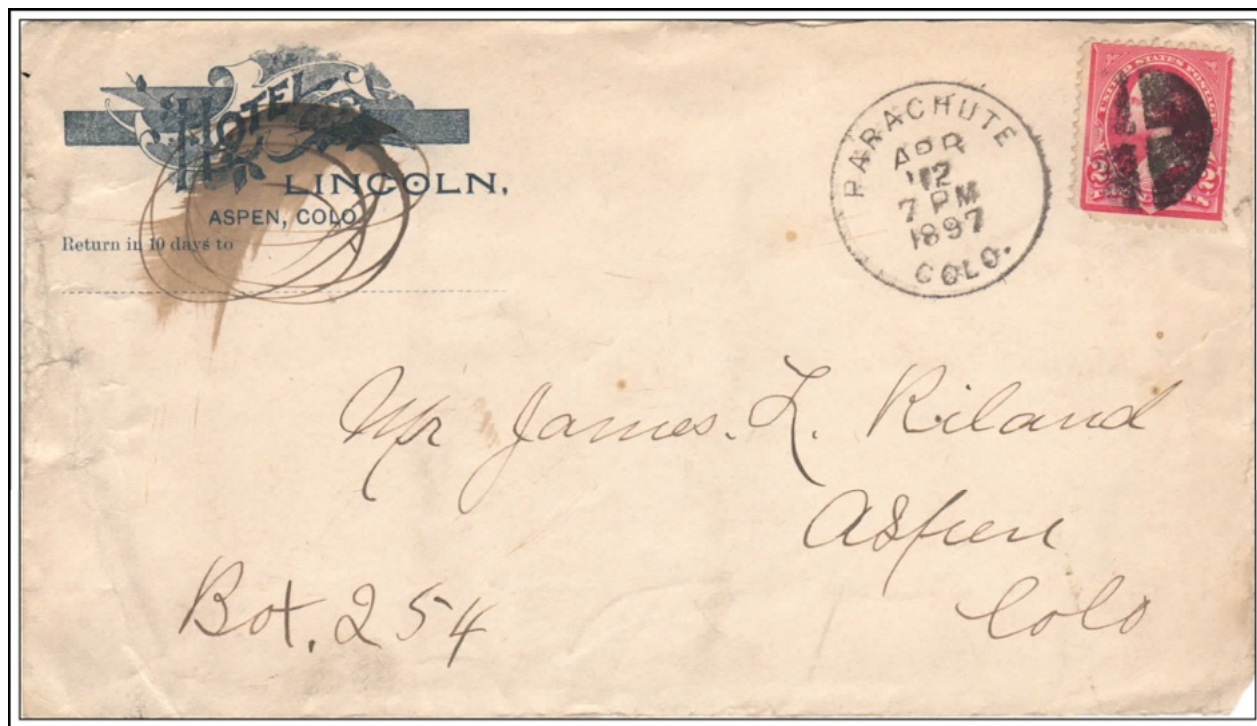 HOTEL
LINCOLN,
ASPEN, COLO.
Return in 10 days to
PARACHUTE
APR
12
7 PM
1897
COLO.
UNITED STATES POSTAGE
2 2
Mr James. L. Riland
Aspen
Colo
Box. 254